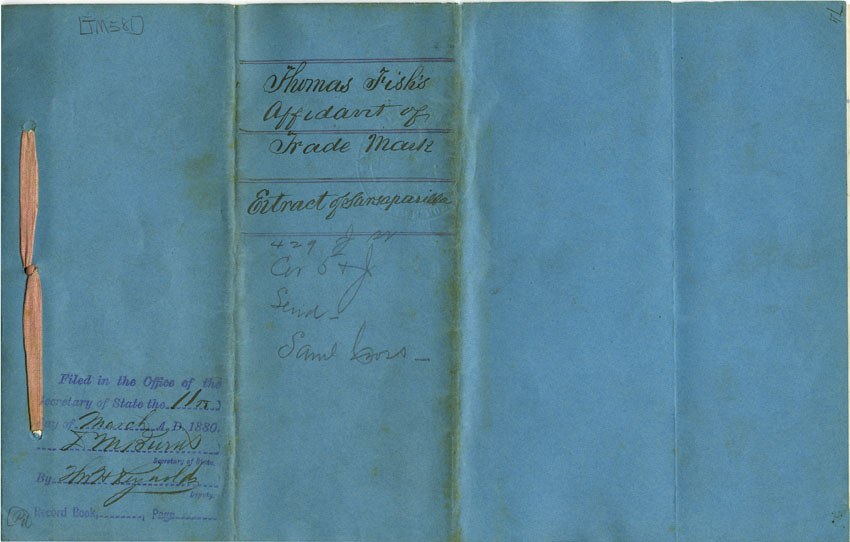 [TM581]
Thomas Fisk's
Affidavit of
Trade Mark
Extract of Sarsaparilla
429 J
Cor 5 + J
Send
Saml
Filed in the Office of the
Secretary of State the 11th
day of March A. D. 1880.
D M Burns
Secretary of State.
By Wm H Reynolds
Deputy.
Record Book, , Page